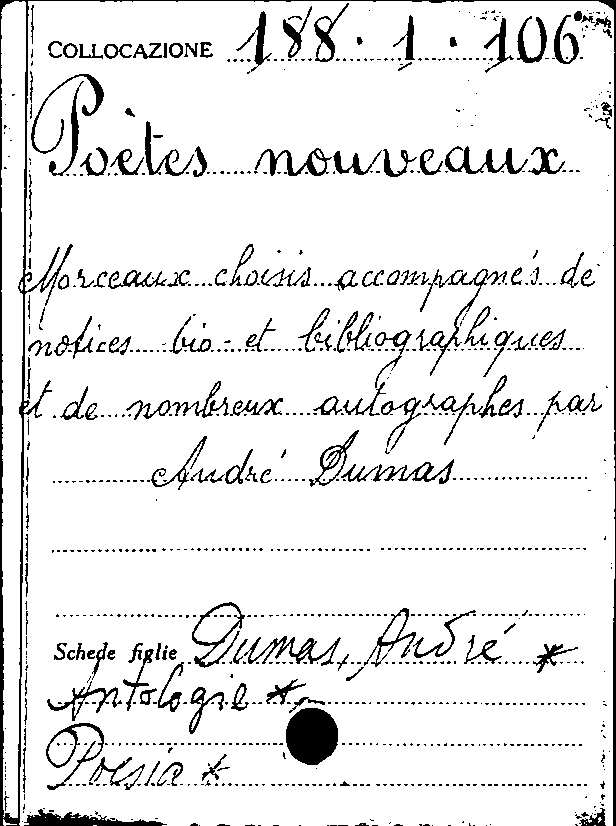 COLLOCAZIONE 188 · 1 · 106
Poètes nouveaux
Morceaux choisis accompagnés de
notices bio- et bibliographiques
et de nombreux autographes par
André Dumas
Schede figlie Dumas, André *
Antologie *
Poesia *